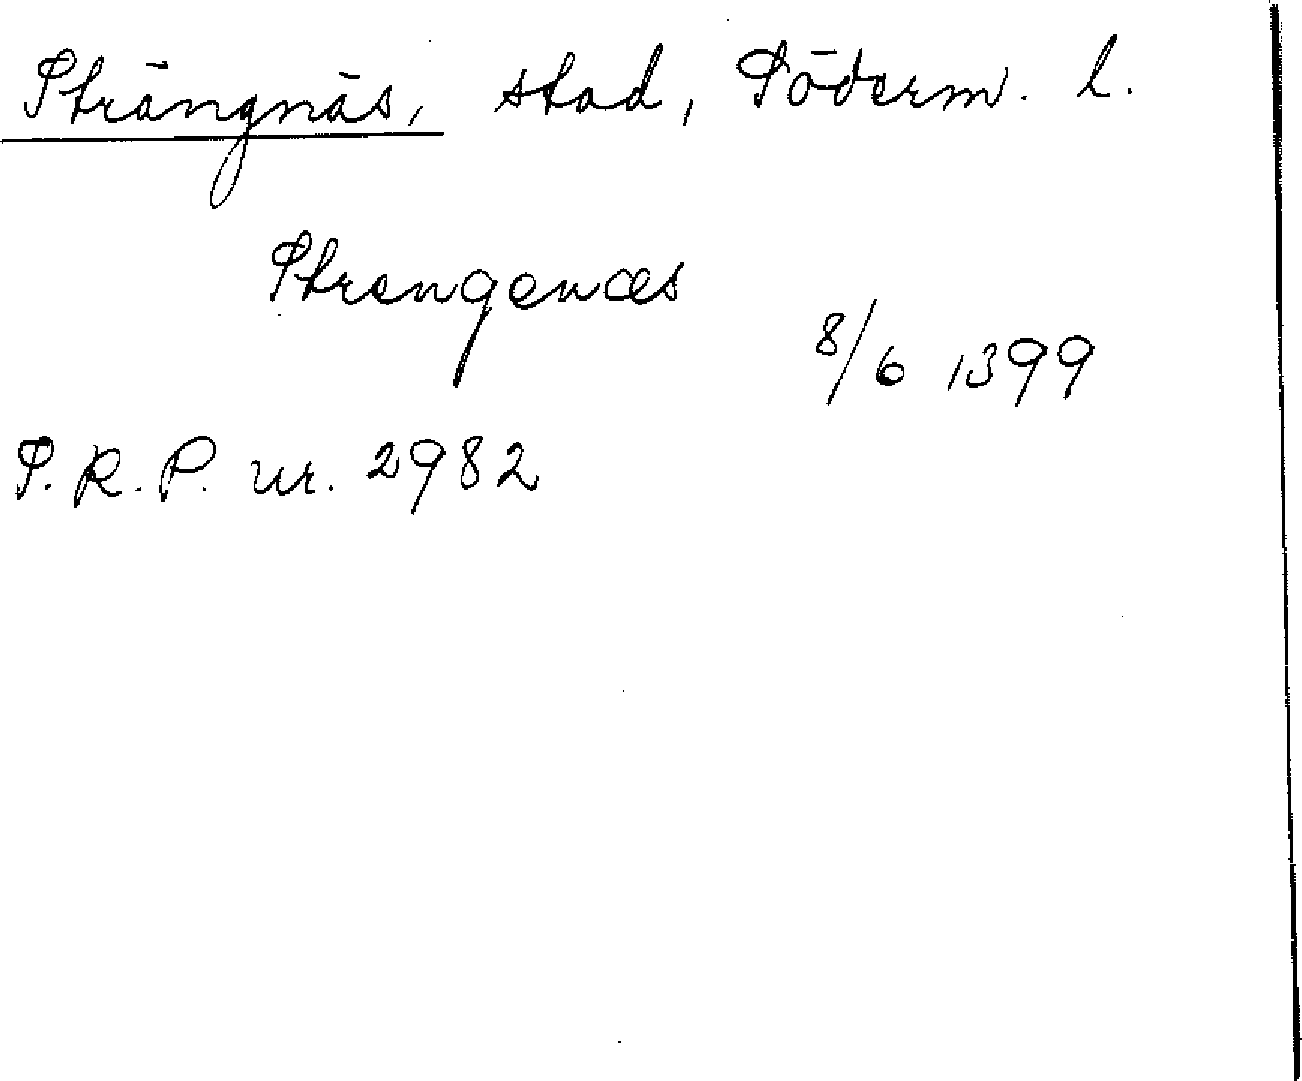 Strängnäs, stad, Söderm. l.
Strengenæs
8/6 1399
S.R.P. nr. 2982